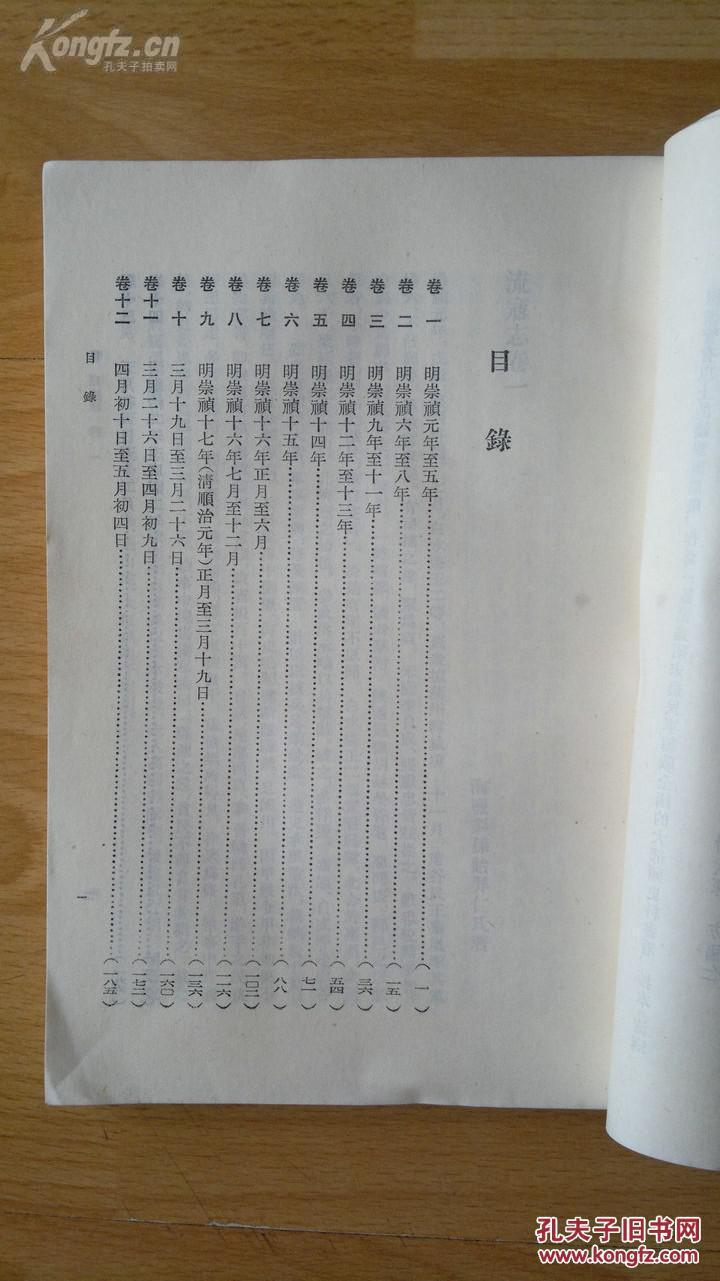 Kongfz.cn
孔夫子拍卖网
目錄
卷一 明崇禎元年至五年……(一)
卷二 明崇禎六年至八年……(一五)
卷三 明崇禎九年至十一年……(三六)
卷四 明崇禎十二年至十三年……(五四)
卷五 明崇禎十四年……(七一)
卷六 明崇禎十五年……(八八)
卷七 明崇禎十六年正月至六月……(一〇二)
卷八 明崇禎十六年七月至十二月……(一二六)
卷九 明崇禎十七年(清順治元年)正月至三月十九日……(一三六)
卷十 三月十九日至三月二十六日……(一六〇)
卷十一 三月二十六日至四月初九日……(一七二)
卷十二 四月初十日至五月初四日……(一八五)
目錄
一
孔夫子旧书网
www.kongfz.com